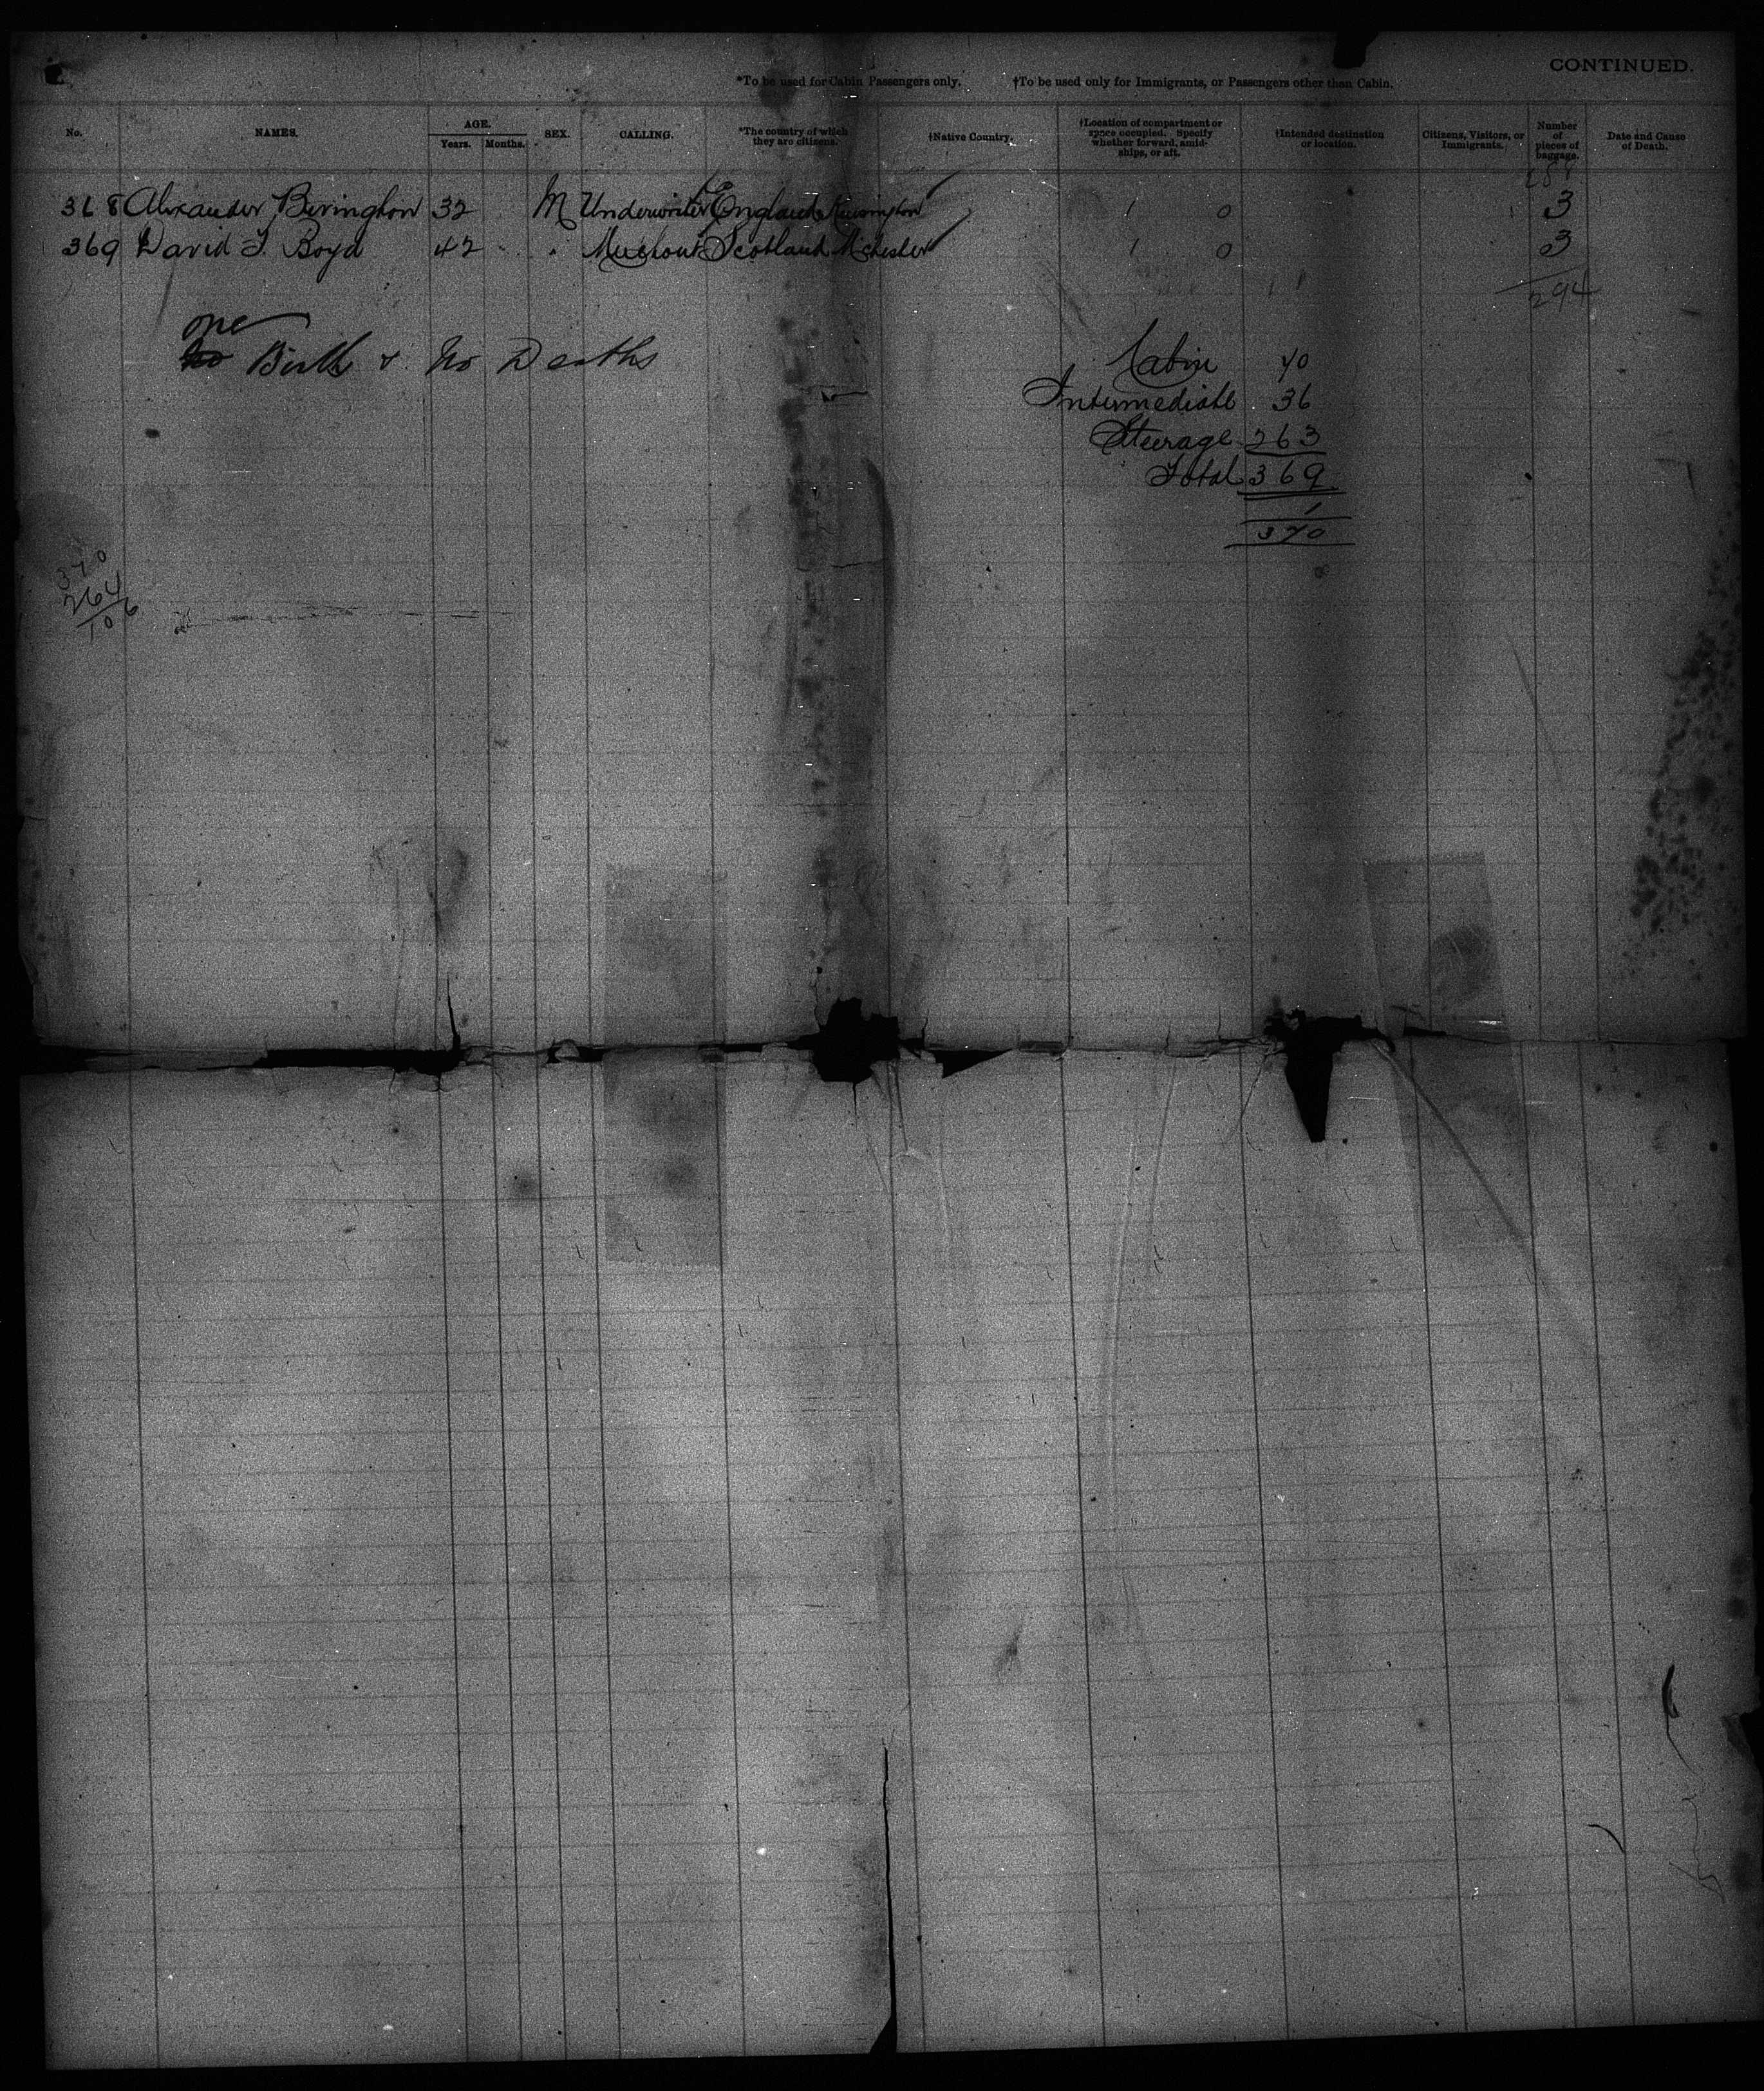 CONTINUED.
*To be used for Cabin Passengers only. †To be used only for Immigrants, or Passengers other than Cabin.
No. NAMES. AGE. Years. Months. SEX. CALLING. *The country of which they are citizens. †Native Country. †Location of compartment or space occupied. Specify whether forward, amidships, or aft. †Intended destination or location. Citizens, Visitors, or Immigrants. Number of pieces of baggage. Date and Cause of Death.
288
368 Alexander Bevington 32 M Underwriter England Kensington 1 0 3
369 David T. Boyd 42 " Scotland 1 0 3
294
one
no Birth & No Deaths
Cabin 70
Intermediate 36
Steerage 263
Total 369
1
370
370
264
106